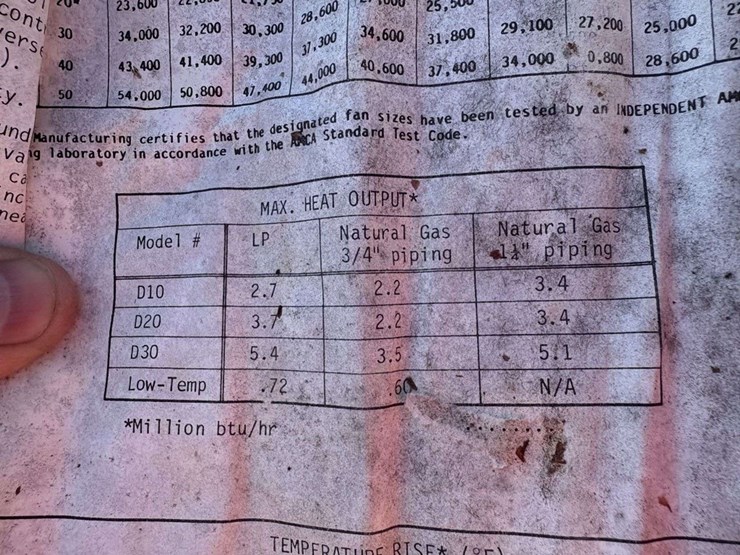 cont
verse
).
y.
und
va
ca
nc
nea
20 23,600 25,500
30 34,000 32,200 30,300 28,600 34,600 31,800 29,100 27,200 25,000
40 43,400 41,400 39,300 37,300 40,600 37,400 34,000 0,800 28,600
50 54,000 50,800 47,400 44,000
Manufacturing certifies that the designated fan sizes have been tested by an INDEPENDENT AM
ng laboratory in accordance with the AMCA Standard Test Code.
MAX. HEAT OUTPUT*
Model # LP Natural Gas 3/4" piping Natural Gas 1¼" piping
D10 2.7 2.2 3.4
D20 3.7 2.2 3.4
D30 5.4 3.5 5.1
Low-Temp .72 .60 N/A
*Million btu/hr
TEMPERATURE RISE* (°F)